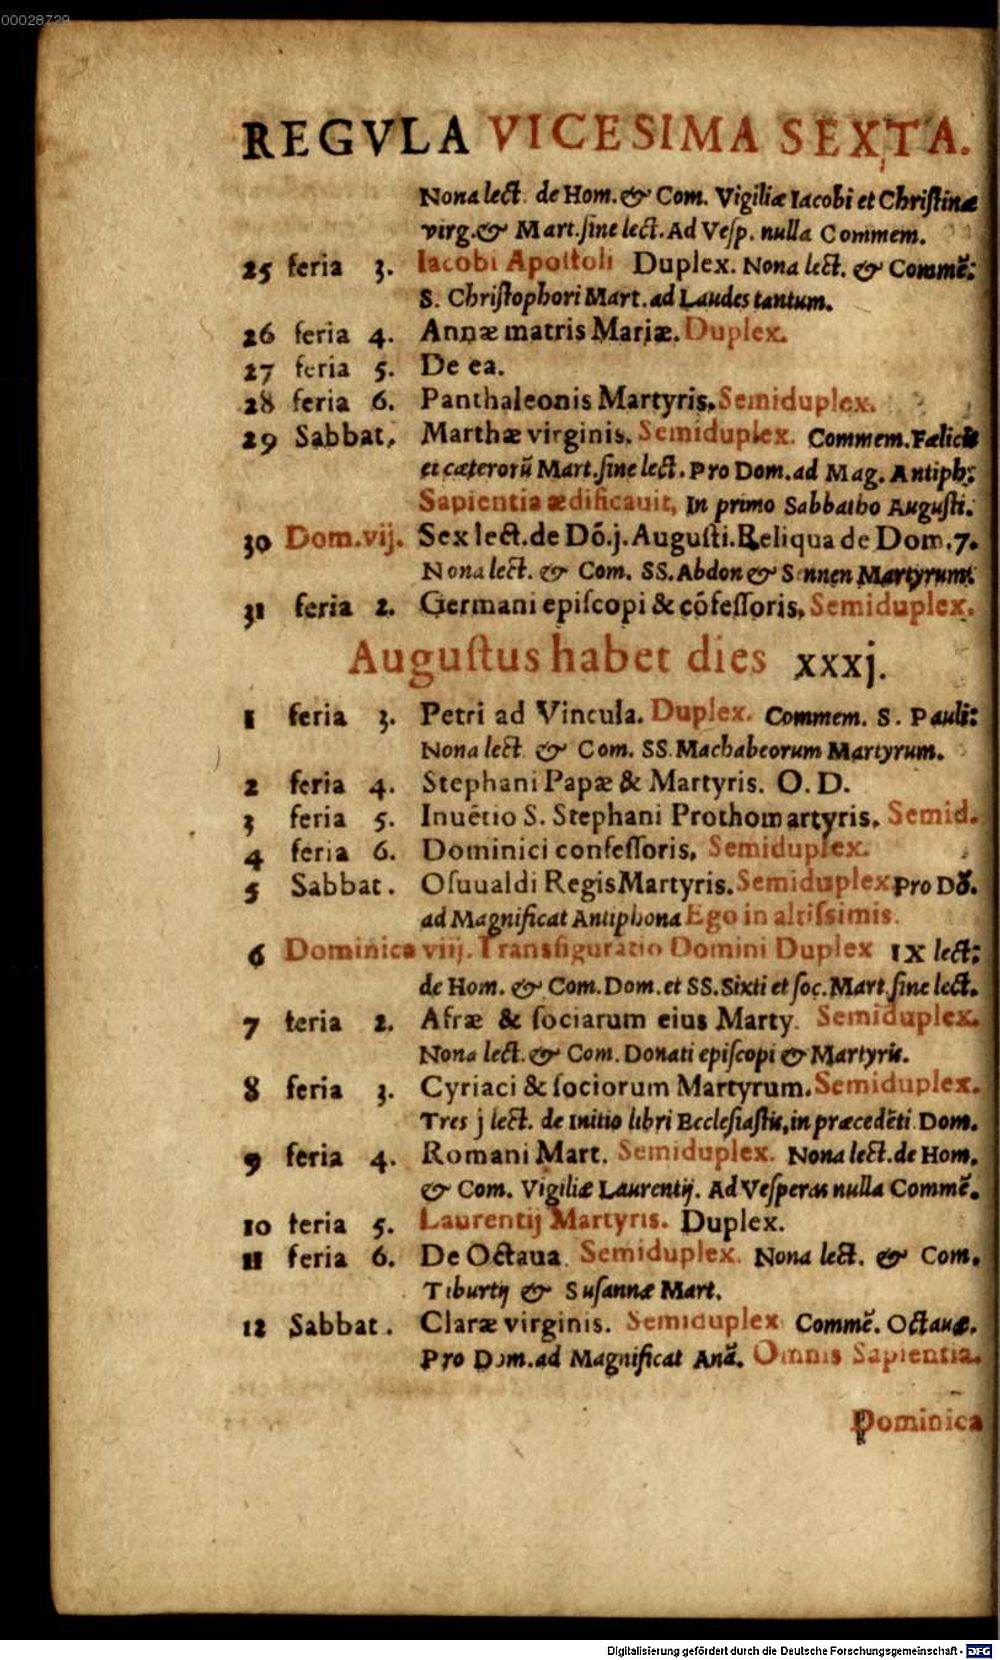 00028729
REGVLA VICESIMA SEXTA.
Nona lect. de Hom. & Com. Vigiliæ Iacobi et Christinæ
virg. & Mart. sine lect. Ad Vesp. nulla Commem.
25 feria 3. Iacobi Apostoli Duplex. Nona lect. & Commē:
S. Christophori Mart. ad Laudes tantum.
26 feria 4. Annæ matris Mariæ. Duplex.
27 feria 5. De ea.
28 feria 6. Panthaleonis Martyris. Semiduplex.
29 Sabbat. Marthæ virginis. Semiduplex. Commem. Fælicis
et cæterorū Mart. sine lect. Pro Dom. ad Mag. Antiph:
Sapientia ædificauit, In primo Sabbatho Augusti.
30 Dom. vij. Sex lect. de Dō. j. Augusti. Reliqua de Dom. 7.
Nona lect. & Com. SS. Abdon & Sennen Martyrum.
31 feria 2. Germani episcopi & cōfessoris, Semiduplex.
Augustus habet dies xxxj.
1 feria 3. Petri ad Vincula. Duplex. Commem. S. Pauli:
Nona lect. & Com. SS. Machabeorum Martyrum.
2 feria 4. Stephani Papæ & Martyris. O. D.
3 feria 5. Inuētio S. Stephani Prothomartyris. Semid.
4 feria 6. Dominici confessoris, Semiduplex.
5 Sabbat. Osuualdi Regis Martyris. Semiduplex Pro Dō.
ad Magnificat Antiphona Ego in altissimis.
6 Dominica viij. Transfiguratio Domini Duplex IX lect:
de Hom. & Com. Dom. et SS. Sixti et soc. Mart. sine lect.
7 feria 2. Afræ & sociarum eius Marty. Semiduplex.
Nona lect. & Com. Donati episcopi & Martyris.
8 feria 3. Cyriaci & sociorum Martyrum. Semiduplex.
Tres j lect. de initio libri Ecclesiastis, in præcedēti Dom.
9 feria 4. Romani Mart. Semiduplex. Nona lect. de Hom.
& Com. Vigiliæ Laurentij. Ad Vesperas nulla Commē.
10 feria 5. Laurentij Martyris. Duplex.
11 feria 6. De Octaua. Semiduplex. Nona lect. & Com.
Tiburtij & Susannæ Mart.
12 Sabbat. Claræ virginis. Semiduplex Commē. Octauæ.
Pro Dom. ad Magnificat Anā. Omnis Sapientia.
Dominica
Digitalisierung gefördert durch die Deutsche Forschungsgemeinschaft - DFG